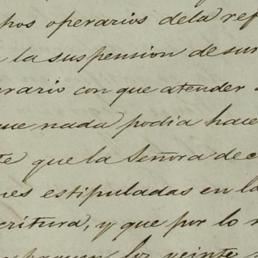 hos operarios dela ref
la suspension de su
erario con que atender
que nada podia hace
te que la Señora de
nes estipuladas en la
critura, y que por lo
los veinte